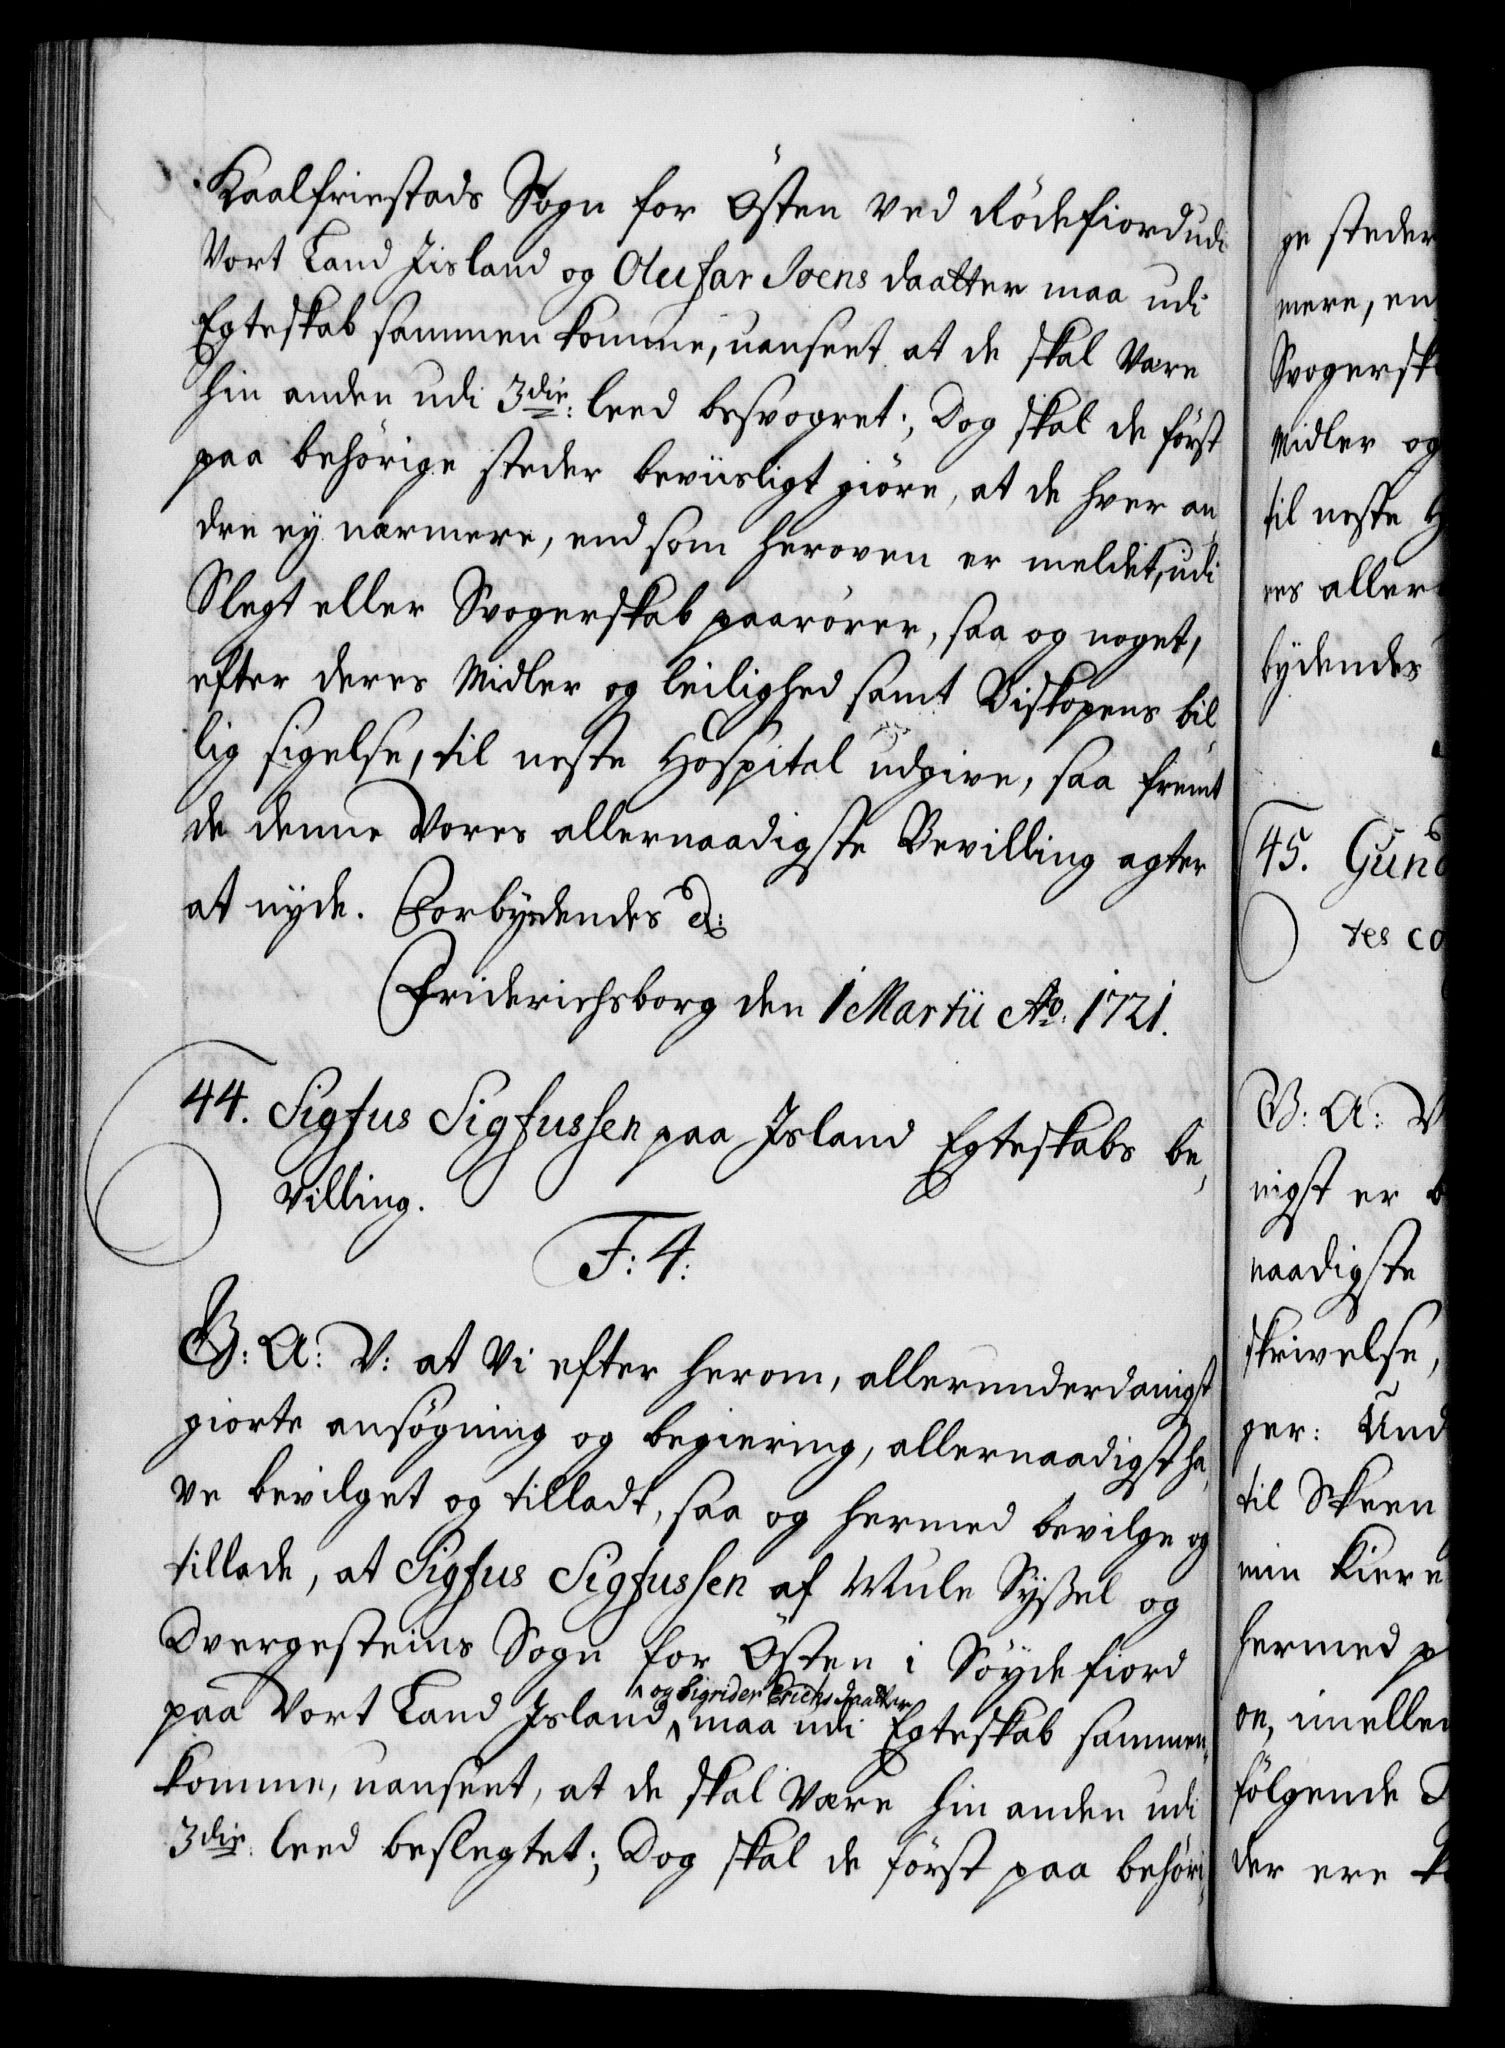 Kaalfriestads Sogn for Östen ved Rödefiord udi
Vort Land Jisland og Olufar Joens daatter maa udi
Egteskab sammen komme, uanseet at de skal Være
hin anden udi 3die: leed besvogret; Dog skal de först
paa behörige steder beviisligt giöre, at de hver an
dre ey nærmere, end som heroven er meldet, udi
Slegt eller Svogerskab paarörer, saa og noget,
efter deres Midler og leilighed samt Biskopens bil
lig sigelse, til neste Hospital udgive, saa fremt
de denne Vores allernaadigste Bevilling agter
at nyde. Forbydendes &:
Friderichsborg den 1 Martii Ao: 1721.
44. Sigfus Sigfussen paa Jsland Egteskabs be,
villing.
F: 4:
G: A: V: at Vi efter herom, allerunderdanigst
giorte ansögning og begiering, allernaadigst ha,
ve bevilget og tilladt, saa og hermed bevilge og
tillade, at Sigfus Sigfussen af Mule Syssel og
Dvergesteins Sogn for Östen i Söyde fiord
og Sigrider Erichs daatter
paa Vort Land Jsland maa udi Egteskab sammen,
komme, uanseet, at de skal Være hin anden udi
3die: leed beslegtet; Dog skal de först paa behöri,
ge steder
mere, en
Svogersk
Midler og
til neste H
res aller
bydendes
45. Gund
tes co
G: A: V
nigst er b
naadigste
skrivelse,
ger: Und
til Skeen
min kiere
hermed p
on, imellem
fölgende
der ere k